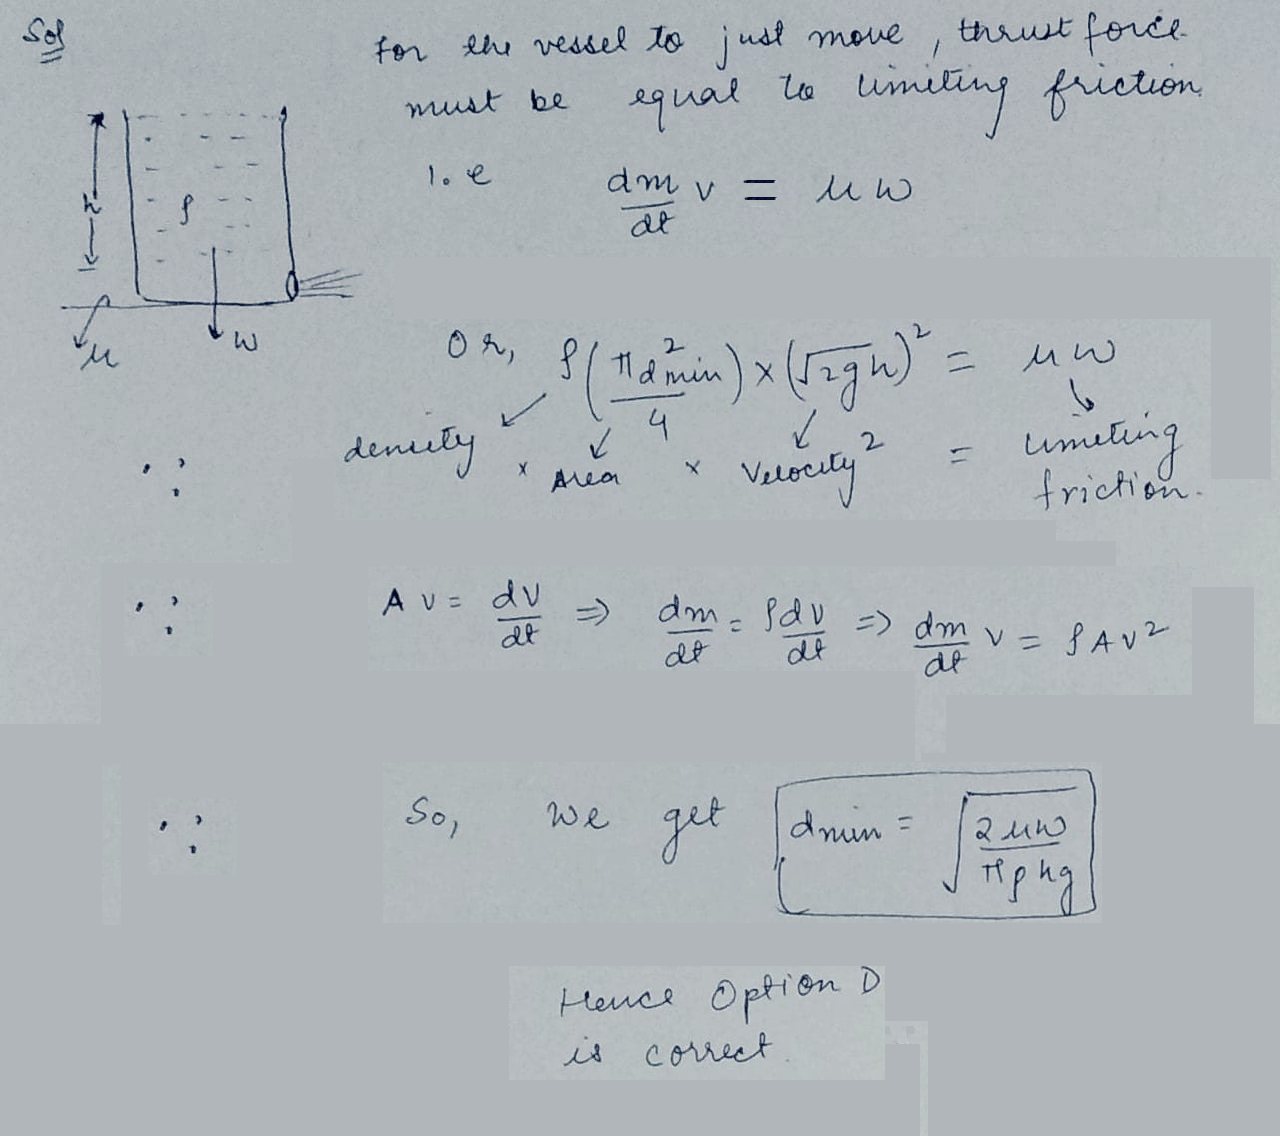 Sol
for the vessel to just move, thrust force
must be equal to limiting friction.
h
ρ
μ
w
i.e dm/dt v = μ w
Or, ρ(πd²min/4) × (√2gh)² = μ w
density × Area × Velocity² = limiting friction.
∵
∵ A v = dv/dt ⇒ dm/dt = ρdv/dt ⇒ dm/dt v = ρ A v²
∵ So, we get dmin = √(2μw/πρhg)
Hence Option D
is correct.